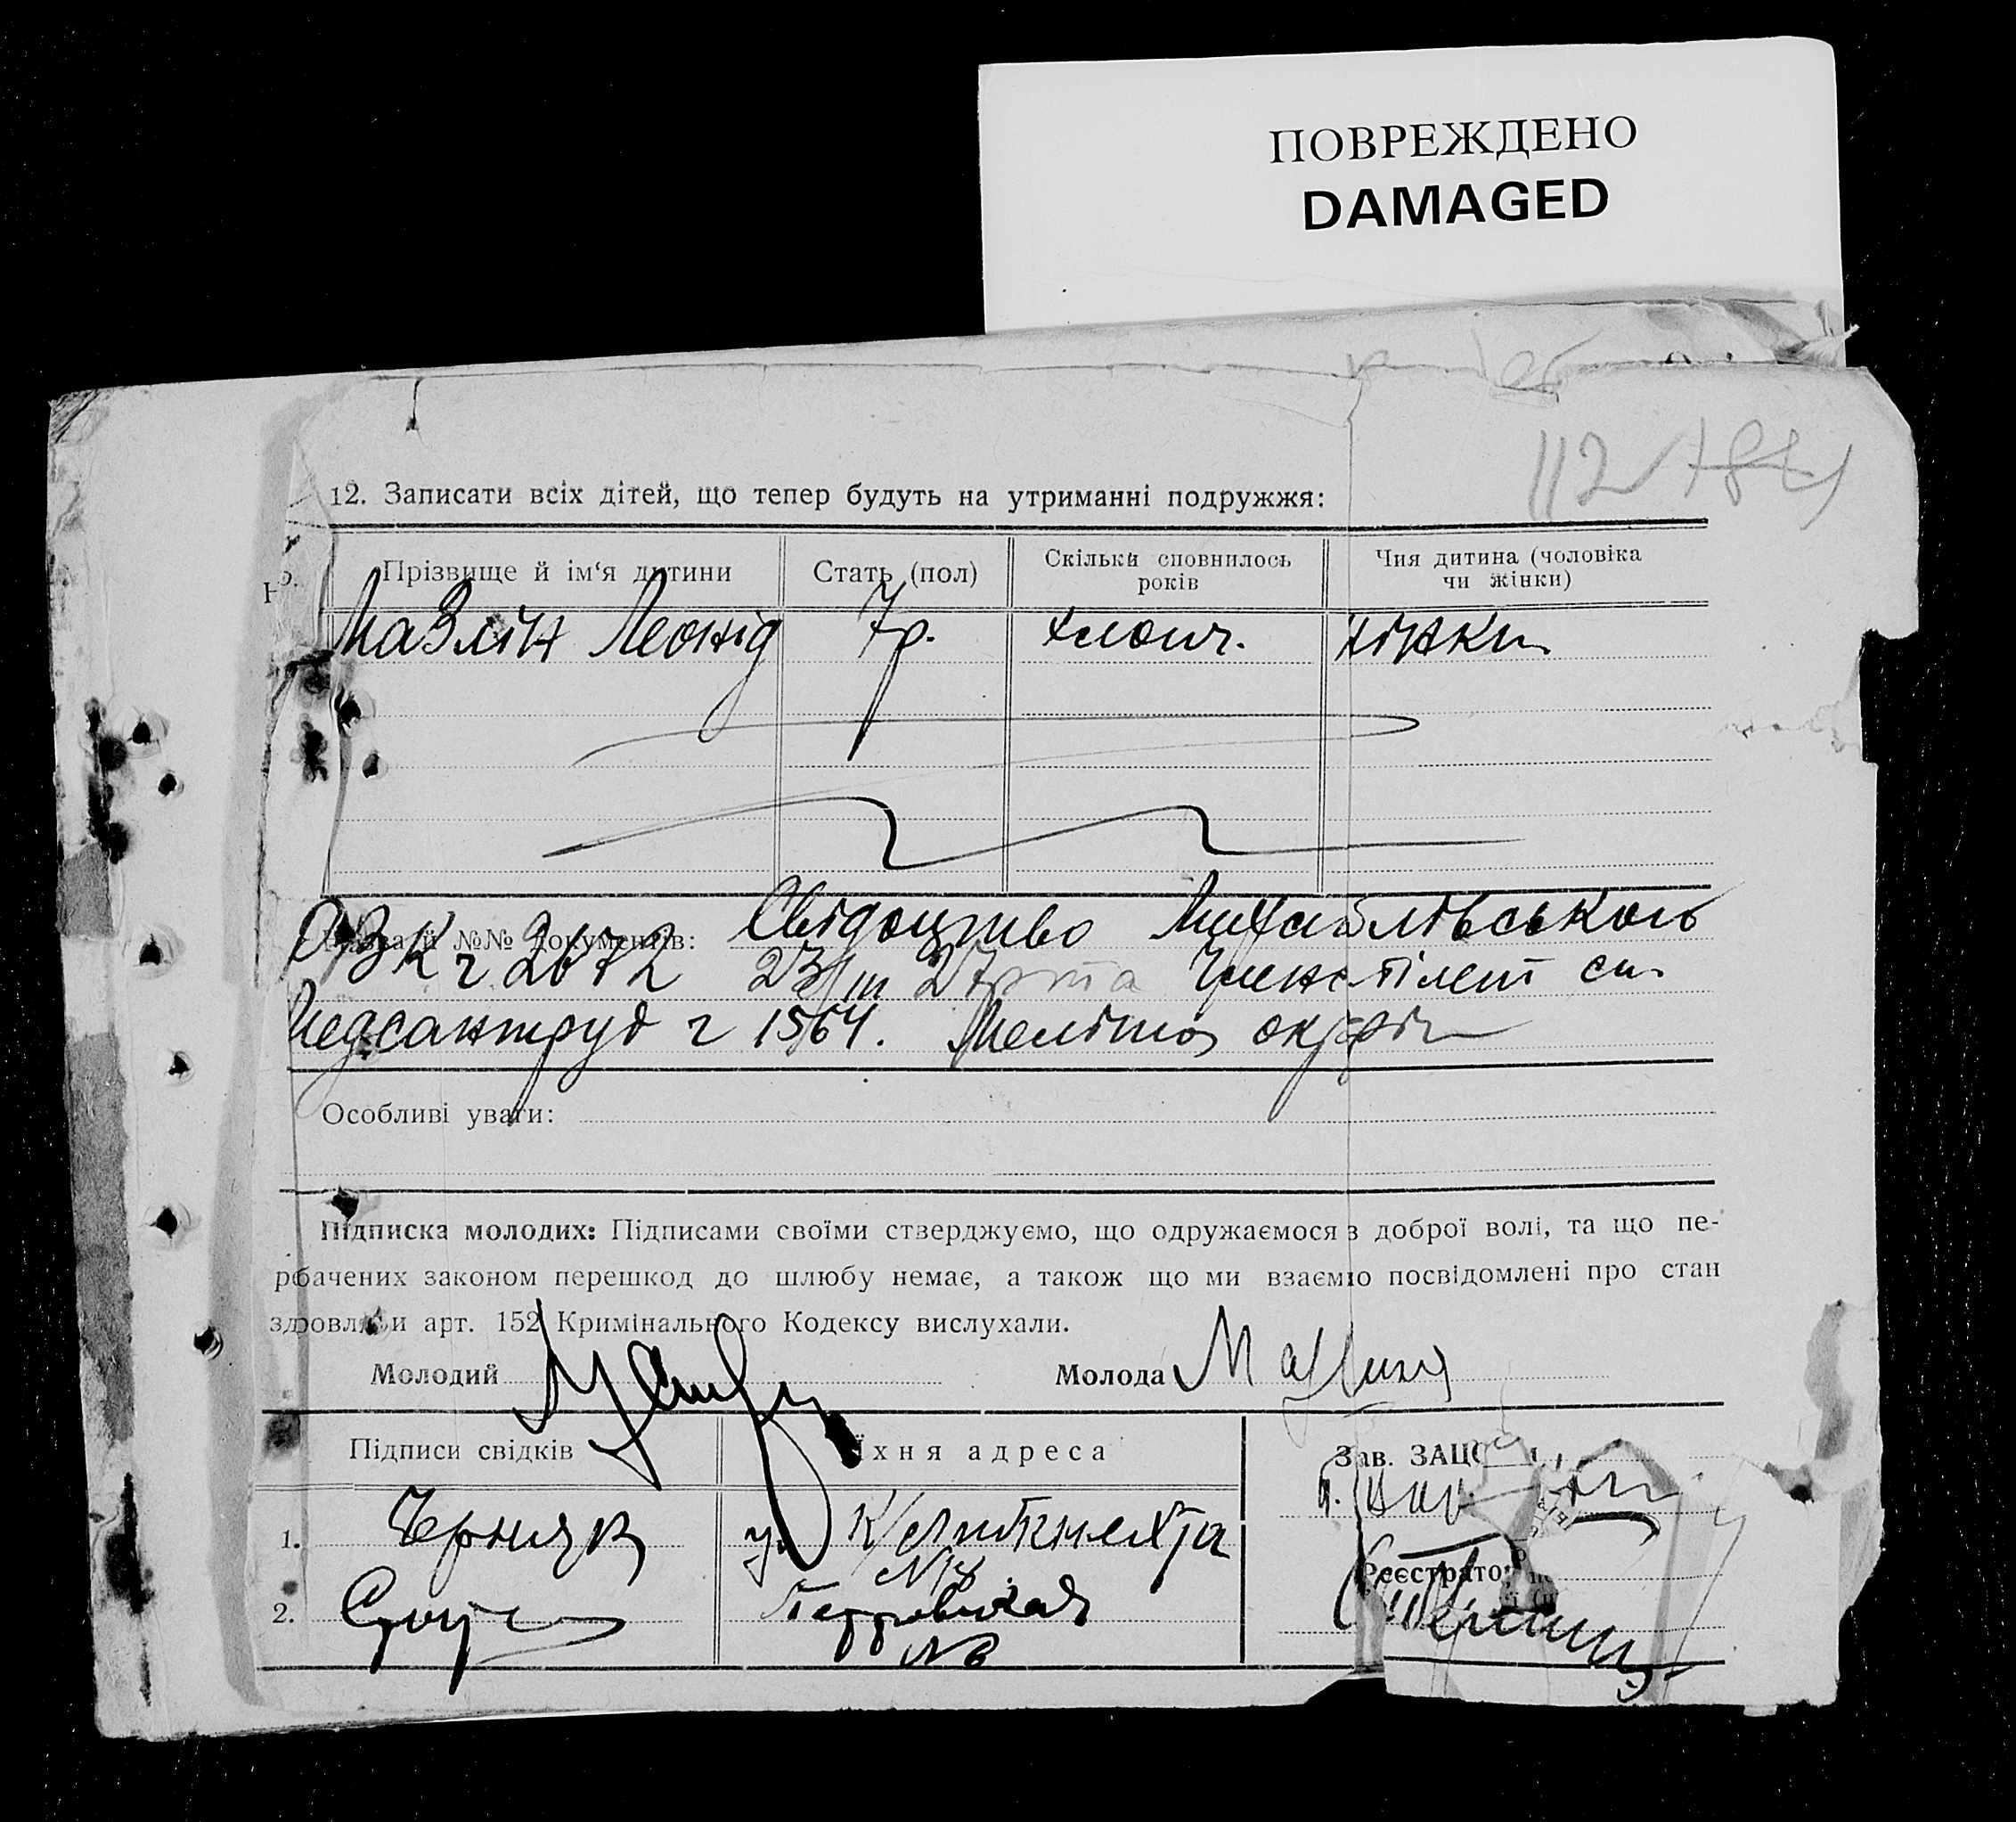 ПОВРЕЖДЕНО
DAMAGED
112
12. Записати всіх дітей, що тепер будуть на утриманні подружжя:
Прізвище й ім‘я дитини Стать (пол) Скільки сповнилось років Чия дитина (чоловіка чи жінки)
Мазлін Леонід 7р. хлопч. жінки
Назва й №№ документів: Свідоцтво Михайлівського
РВК г 2672 23/III 27р та Членс білет сп.
Медсантруд г 1564. Меліто округи
Особливі уваги:
Підписка молодих: Підписами своїми стверджуємо, що одружаємося з доброї волі, та що пе-
рбачених законом перешкод до шлюбу немає, а також що ми взаємно посвідомлені про стан
здровля и арт. 152 Кримінального Кодексу вислухали.
Молодий Молода
Підписи свідків Їхня адреса Зав. ЗАЦС
1. Черняк у. К/Лібкнехта
2.
№ 6
Реєстратор